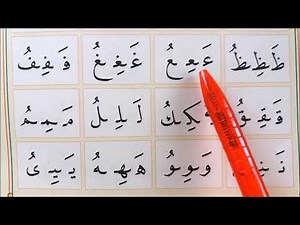 ظَظِظُ عَعِعُ غَغِغُ فَفِفُ
قَقِقُ كَكِكُ لَلِلُ مَمِمُ
نَنِنُ وَوِوُ هَهِهُ يَيِيُ